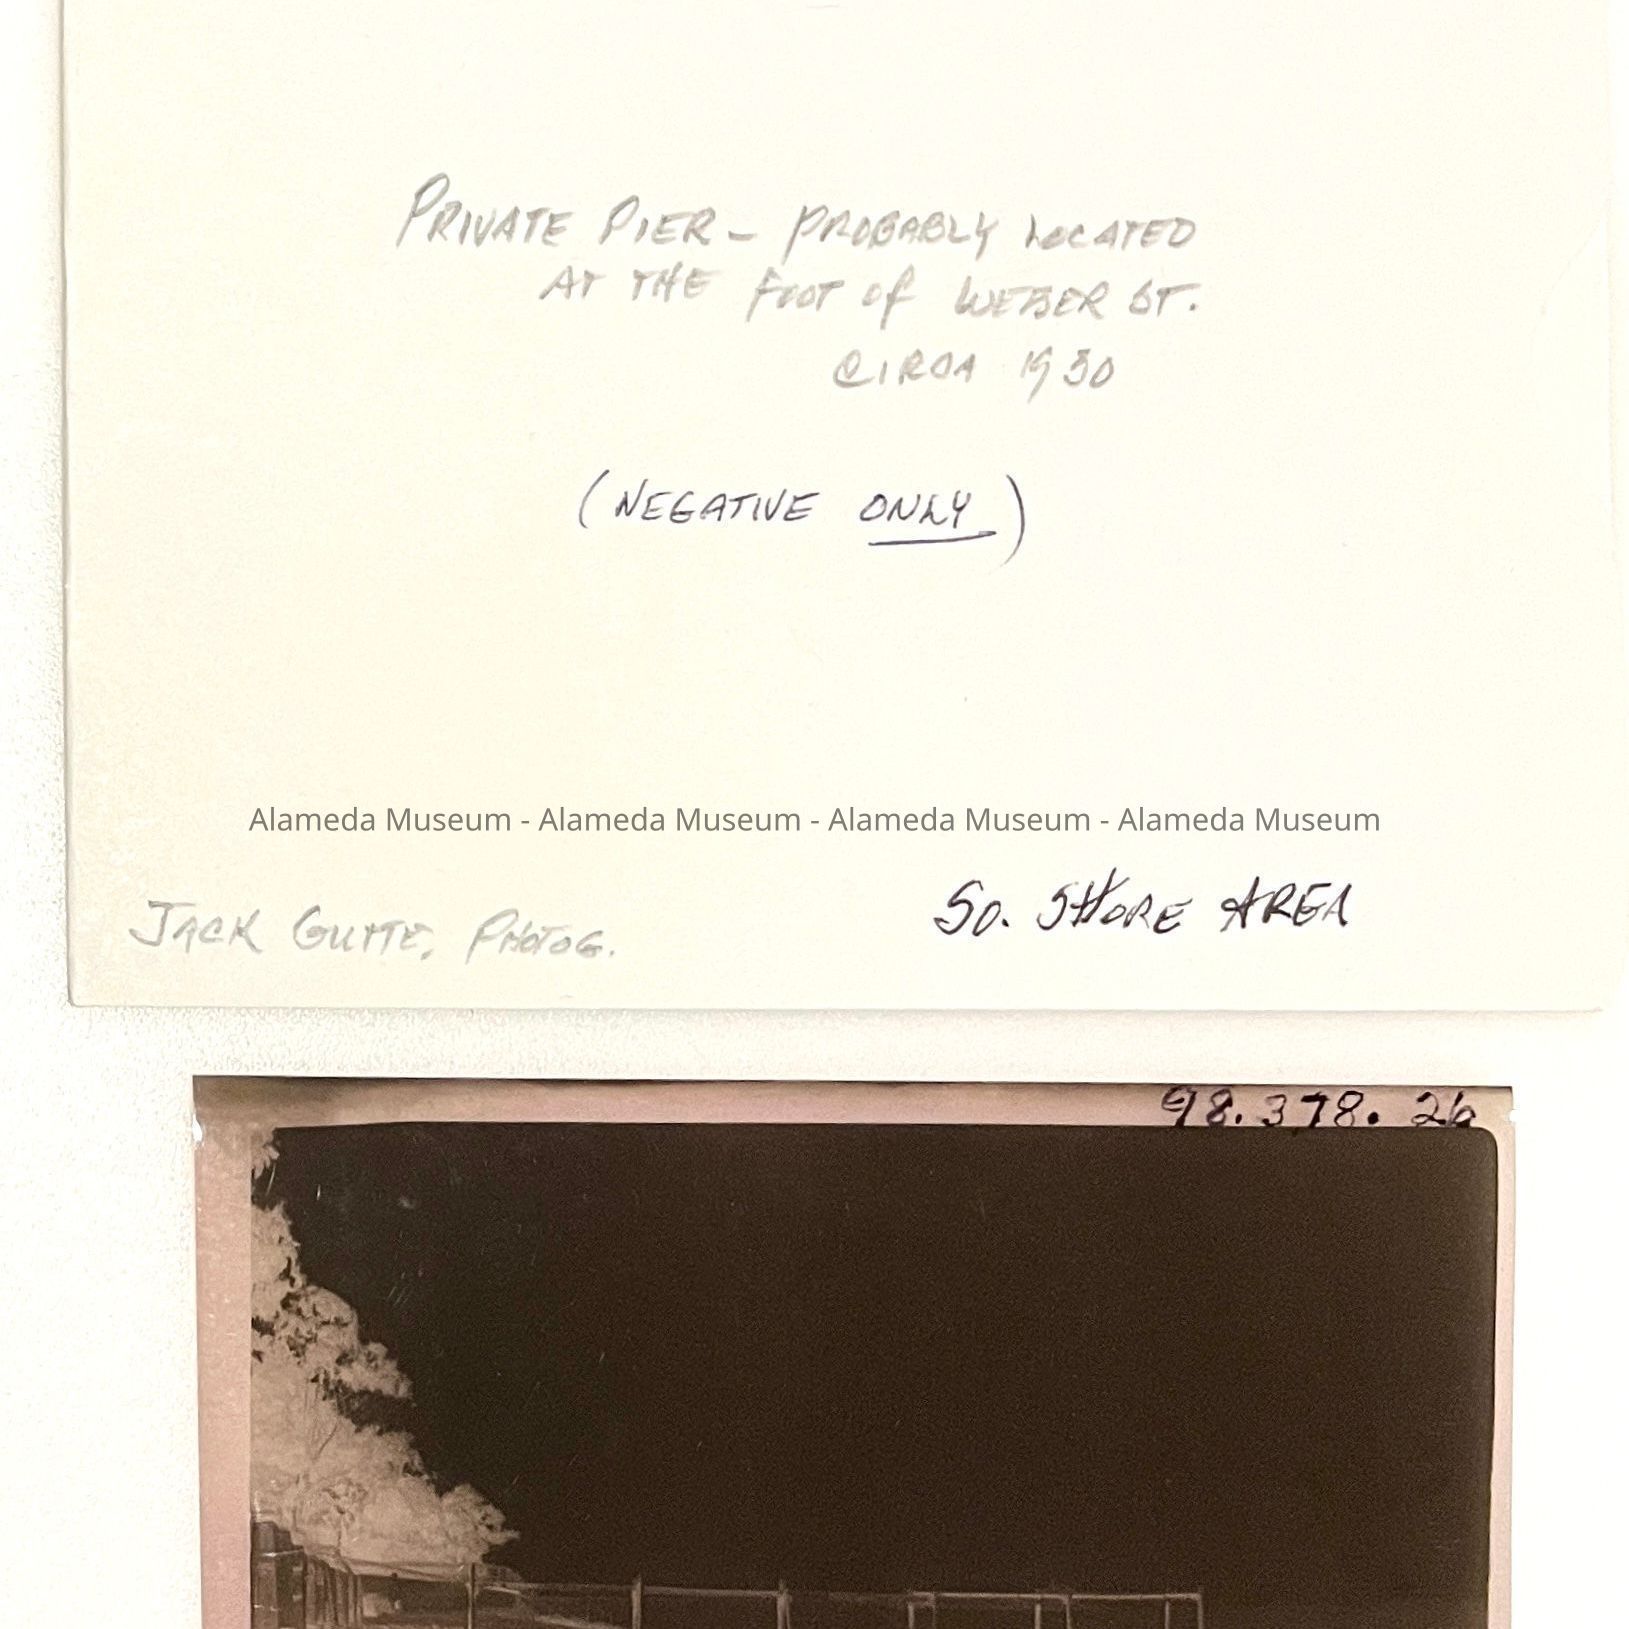 PRIVATE PIER - PROBABLY LOCATED
AT THE FOOT OF WEBER ST.
CIRCA 1930
(NEGATIVE ONLY)
Alameda Museum - Alameda Museum - Alameda Museum - Alameda Museum
JACK GUTTE, PHOTOG.
SO. SHORE AREA
98.378.26